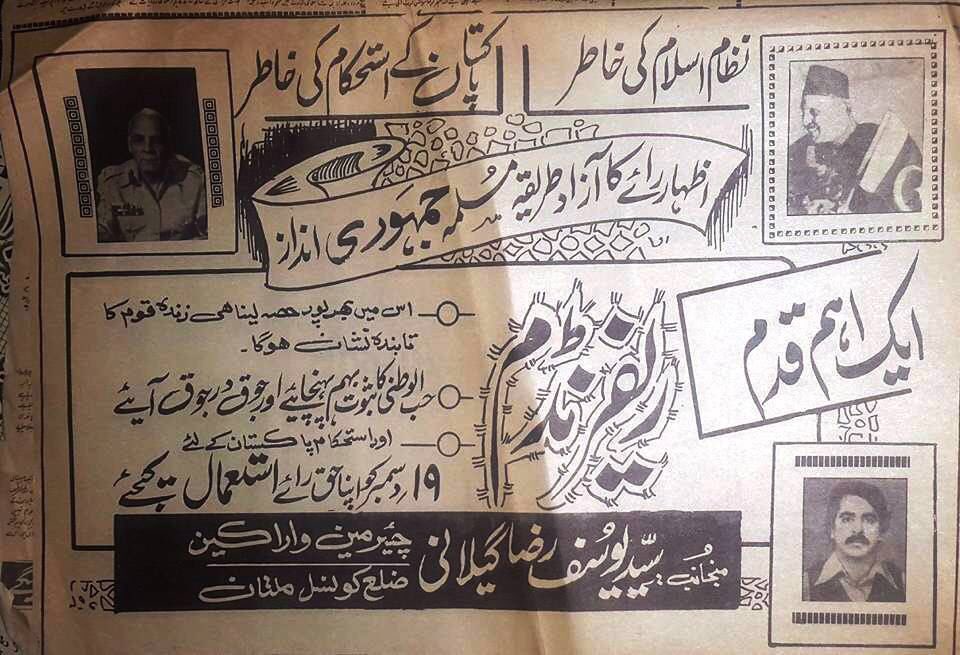 نظام اسلام کی خاطر
پاکستان کے استحکام کی خاطر
اظہار رائے کا آزاد طریقہ مسلمہ جمہوری انداز
ایک اہم قدم
ریفرنڈم
اس میں بھرپور حصہ لینا ھی زندہ قوم کا
تابندہ نشان ھوگا۔
حب الوطنی کا ثبوت بہم پہنچایئے اور جوق در جوق آیئے
اور استحکام پاکستان کے لئے
۱۹؍ دسمبر کو اپنا حق رائے استعمال کیجئے
منجانب: سیّد یوسف رضا گیلانی
چیئرمین و اراکین
ضلع کونسل ملتان